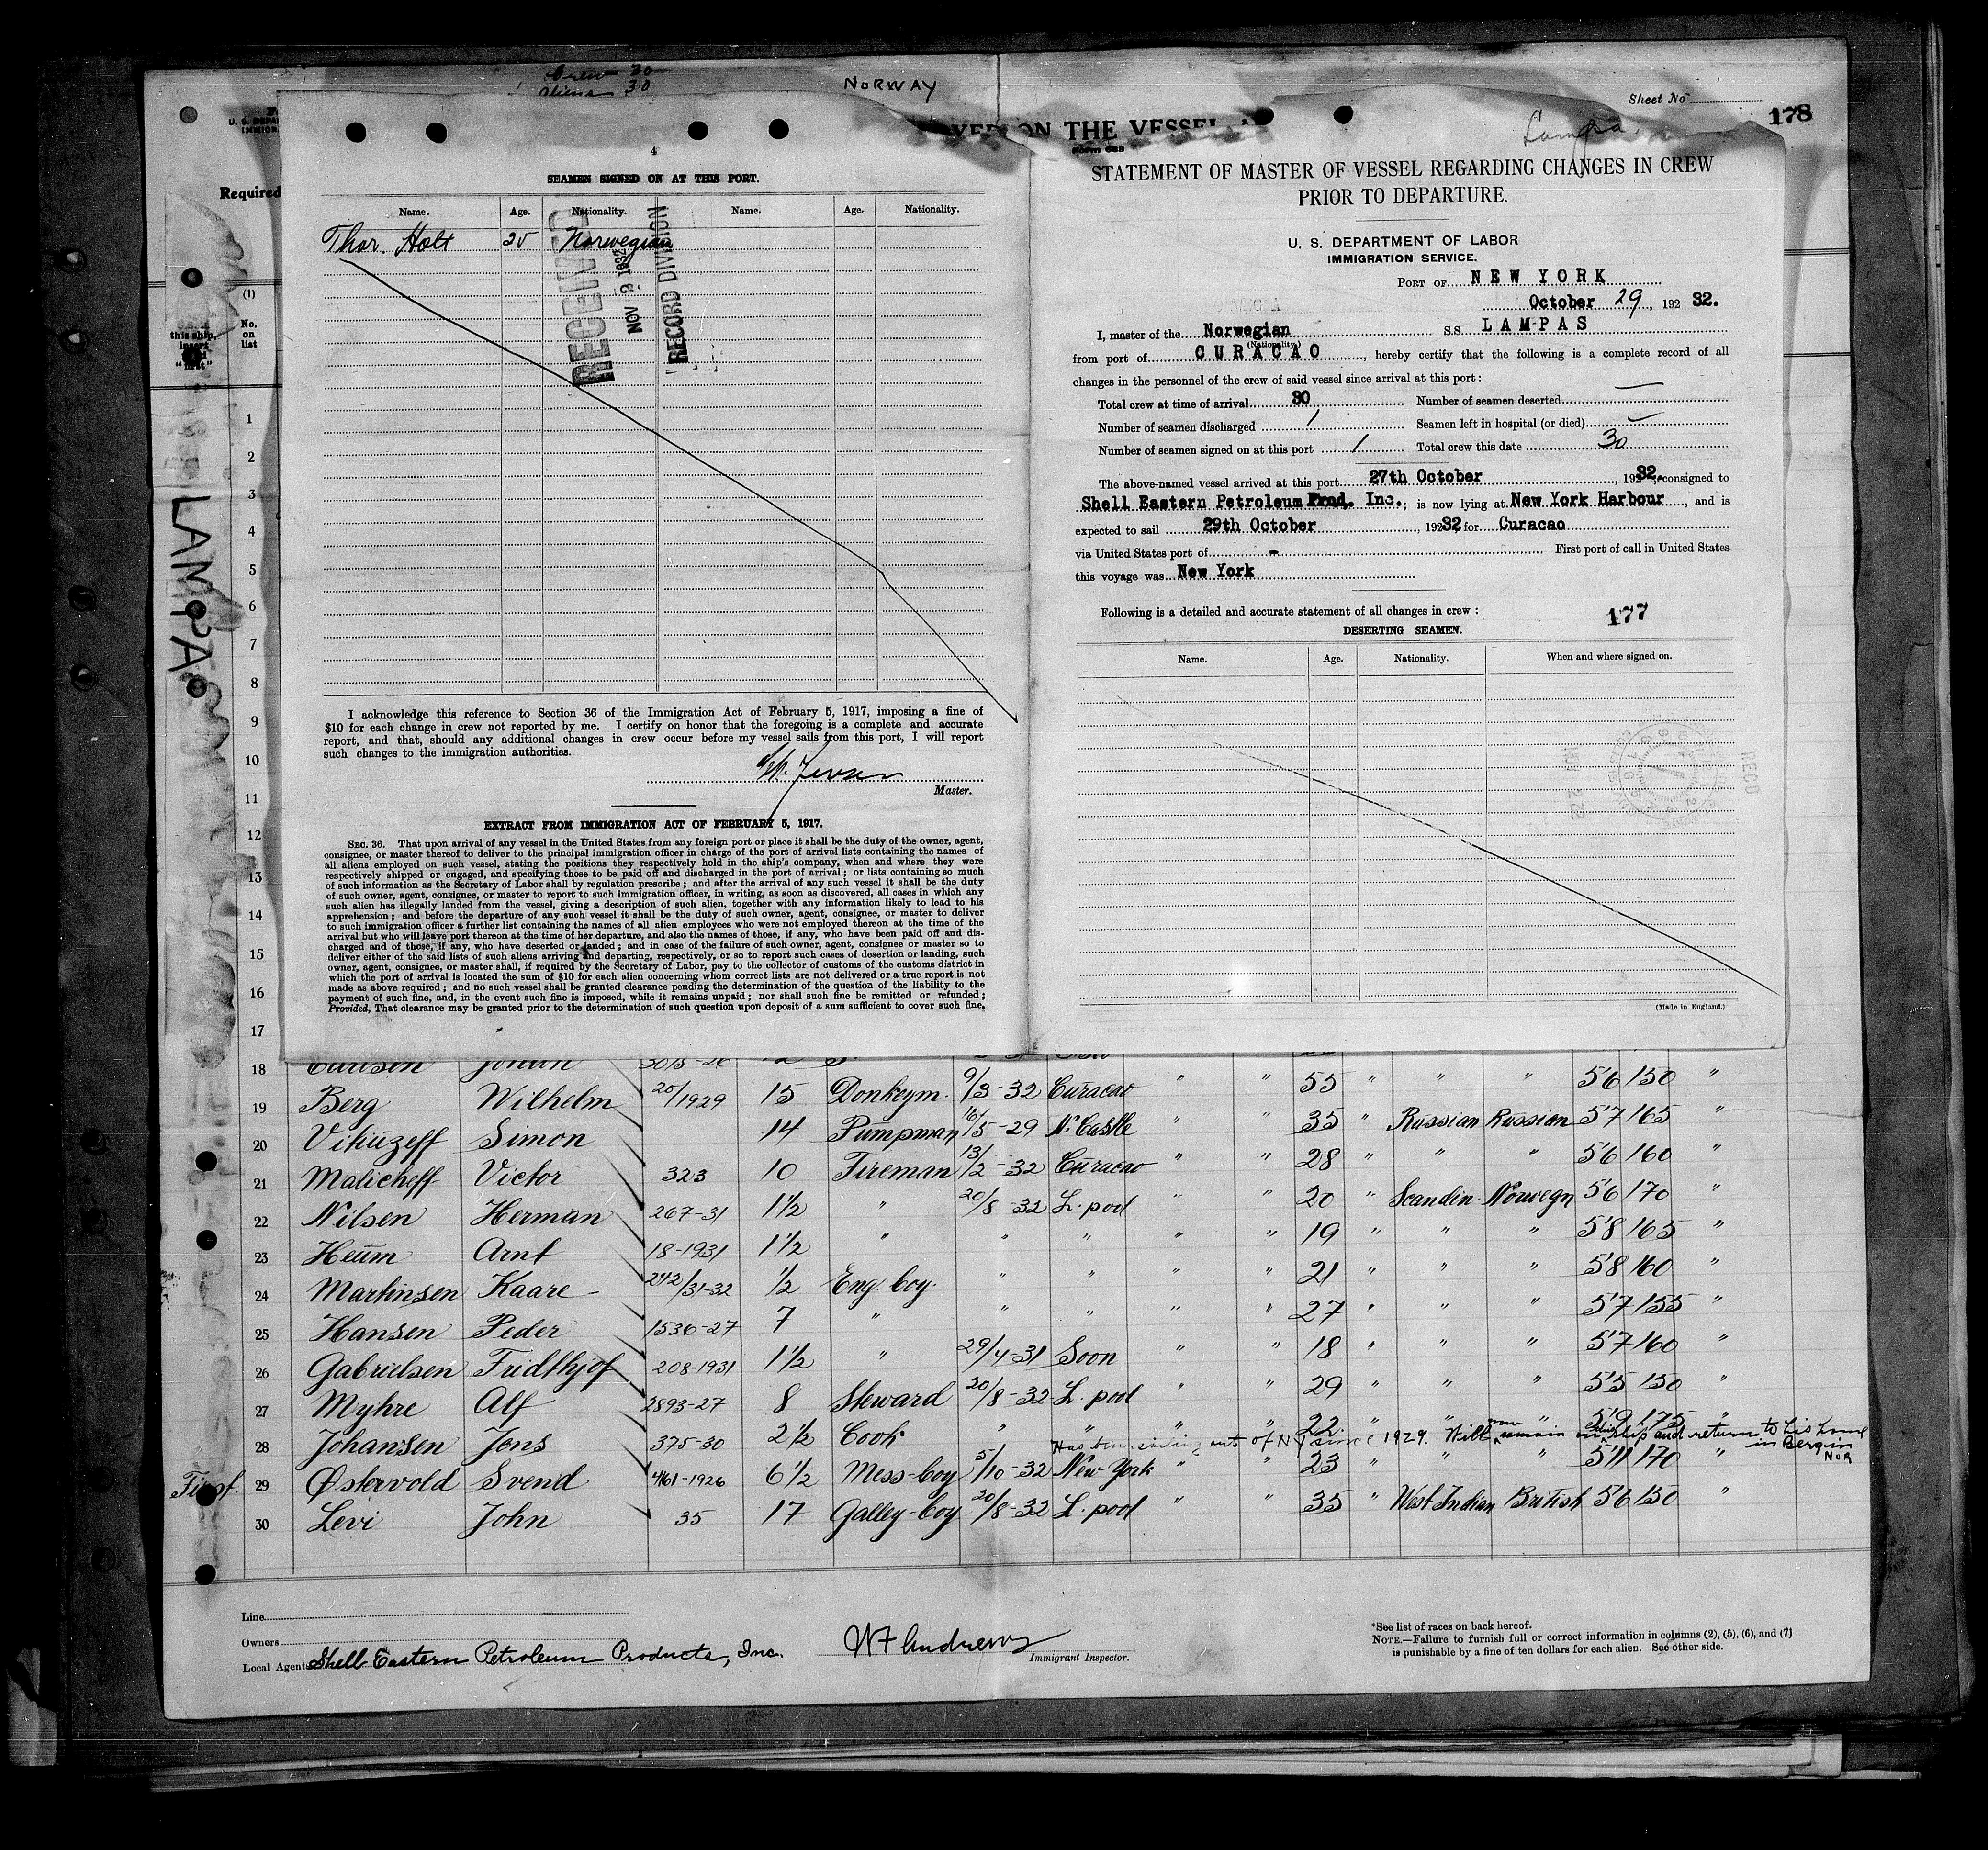 Crew 30
Aliens 30
NORWAY
Sheet No
178
U. S. DEPA
IMMIGR
Required
YED ON THE VESSEL
Lampa
(1)
No.
on
list
this ship,
insert
"first"
LAMPA
4
SEAMEN SIGNED ON AT THIS PORT.
Name. Age. Nationality. Name. Age. Nationality.
Thor. Holt 25 Norwegian
RECEIVED
NOV 3 1932
RECORD DIVISION
I acknowledge this reference to Section 36 of the Immigration Act of February 5, 1917, imposing a fine of
$10 for each change in crew not reported by me. I certify on honor that the foregoing is a complete and accurate
report, and that, should any additional changes in crew occur before my vessel sails from this port, I will report
such changes to the immigration authorities.
Master.
EXTRACT FROM IMMIGRATION ACT OF FEBRUARY 5, 1917.
SEC. 36. That upon arrival of any vessel in the United States from any foreign port or place it shall be the duty of the owner, agent,
consignee, or master thereof to deliver to the principal immigration officer in charge of the port of arrival lists containing the names of
all aliens employed on such vessel, stating the positions they respectively hold in the ship's company, when and where they were
respectively shipped or engaged, and specifying those to be paid off and discharged in the port of arrival; or lists containing so much
of such information as the Secretary of Labor shall by regulation prescribe; and after the arrival of any such vessel it shall be the duty
of such owner, agent, consignee, or master to report to such immigration officer, in writing, as soon as discovered, all cases in which any
such alien has illegally landed from the vessel, giving a description of such alien, together with any information likely to lead to his
apprehension; and before the departure of any such vessel it shall be the duty of such owner, agent, consignee, or master to deliver
to such immigration officer a further list containing the names of all alien employees who were not employed thereon at the time of the
arrival but who will leave port thereon at the time of her departure, and also the names of those, if any, who have been paid off and dis-
charged and of those, if any, who have deserted or landed; and in case of the failure of such owner, agent, consignee or master so to
deliver either of the said lists of such aliens arriving and departing, respectively, or so to report such cases of desertion or landing, such
owner, agent, consignee, or master shall, if required by the Secretary of Labor, pay to the collector of customs of the customs district in
which the port of arrival is located the sum of $10 for each alien concerning whom correct lists are not delivered or a true report is not
made as above required; and no such vessel shall be granted clearance pending the determination of the question of the liability to the
payment of such fine, and, in the event such fine is imposed, while it remains unpaid; nor shall such fine be remitted or refunded;
Provided, That clearance may be granted prior to the determination of such question upon deposit of a sum sufficient to cover such fine.
Form 689
STATEMENT OF MASTER OF VESSEL REGARDING CHANGES IN CREW
PRIOR TO DEPARTURE.
U. S. DEPARTMENT OF LABOR
IMMIGRATION SERVICE.
PORT OF NEW YORK
October 29, 192 32.
I, master of the Norwegian S.S. LAMPAS
(Nationality)
from port of CURACAO, hereby certify that the following is a complete record of all
changes in the personnel of the crew of said vessel since arrival at this port:
Total crew at time of arrival 30 Number of seamen deserted —
Number of seamen discharged 1 Seamen left in hospital (or died) —
Number of seamen signed on at this port 1 Total crew this date 30
The above-named vessel arrived at this port 27th October, 192 32. consigned to
Shell Eastern Petroleum Prod. Inc.; is now lying at New York Harbour, and is
expected to sail 29th October, 192 32, for Curacao
via United States port of - First port of call in United States
this voyage was New York
Following is a detailed and accurate statement of all changes in crew:
177
DESERTING SEAMEN.
Name. Age. Nationality. When and where signed on.
RECD
(Made in England.)
1
2
3
4
5
6
7
8
9
10
11
12
13
14
15
16
17
18
19 Berg Wilhelm 20/1929 15 Donkeym. 9/3-32 Curacao " " 55 " " " 5'6 150 "
20 Vikuzeff Simon 14 Pumpman 16/5-29 N. Castle " " 35 " Russian Russian 5'7 165 "
21 Malicheff Victor 323 10 Fireman 13/2-32 Curacao " " 28 " " " 5'6 160 "
22 Nilsen Herman 267-31 1½ " 20/8-32 L. pool " " 20 " Scandin Norwegn 5'6 170 "
23 Heum Arnt 18-1931 1½ " " " " " 19 " " " 5'8 165 "
24 Martinsen Kaare 242/31-32 ½ Eng. boy. " " " " 21 " " " 5'8 160 "
25 Hansen Peder 1536-27 7 " " " " " 27 " " " 5'7 155 "
26 Gabrielsen Fridthjof 208-1931 1½ " 29/4-31 Soon " " 18 " " " 5'7 160 "
27 Myhre Alf 2893-27 8 Steward 20/8-32 L. pool " " 29 " " " 5'5 150 "
28 Johansen Jens 375-30 2½ Cook " " " " 22 " " " 5'9 175 "
Has been sailing out of NY since 1929. Will now remain on this ship and return to his home
in Bergin
NOR
First 29 Østervold Svend 4161-1926 6½ Mess-boy 5/10-32 New York " " 23 " " " 5'11 170 "
30 Levi John 35 17 Galley-boy 20/8-32 L. pool " " 35 " West Indian British 5'6 150 "
Line
Owners
Local Agents Shell Eastern Petroleum Products, Inc.
Immigrant Inspector.
*See list of races on back hereof.
NOTE.—Failure to furnish full or correct information in columns (2), (5), (6), and (7)
is punishable by a fine of ten dollars for each alien. See other side.